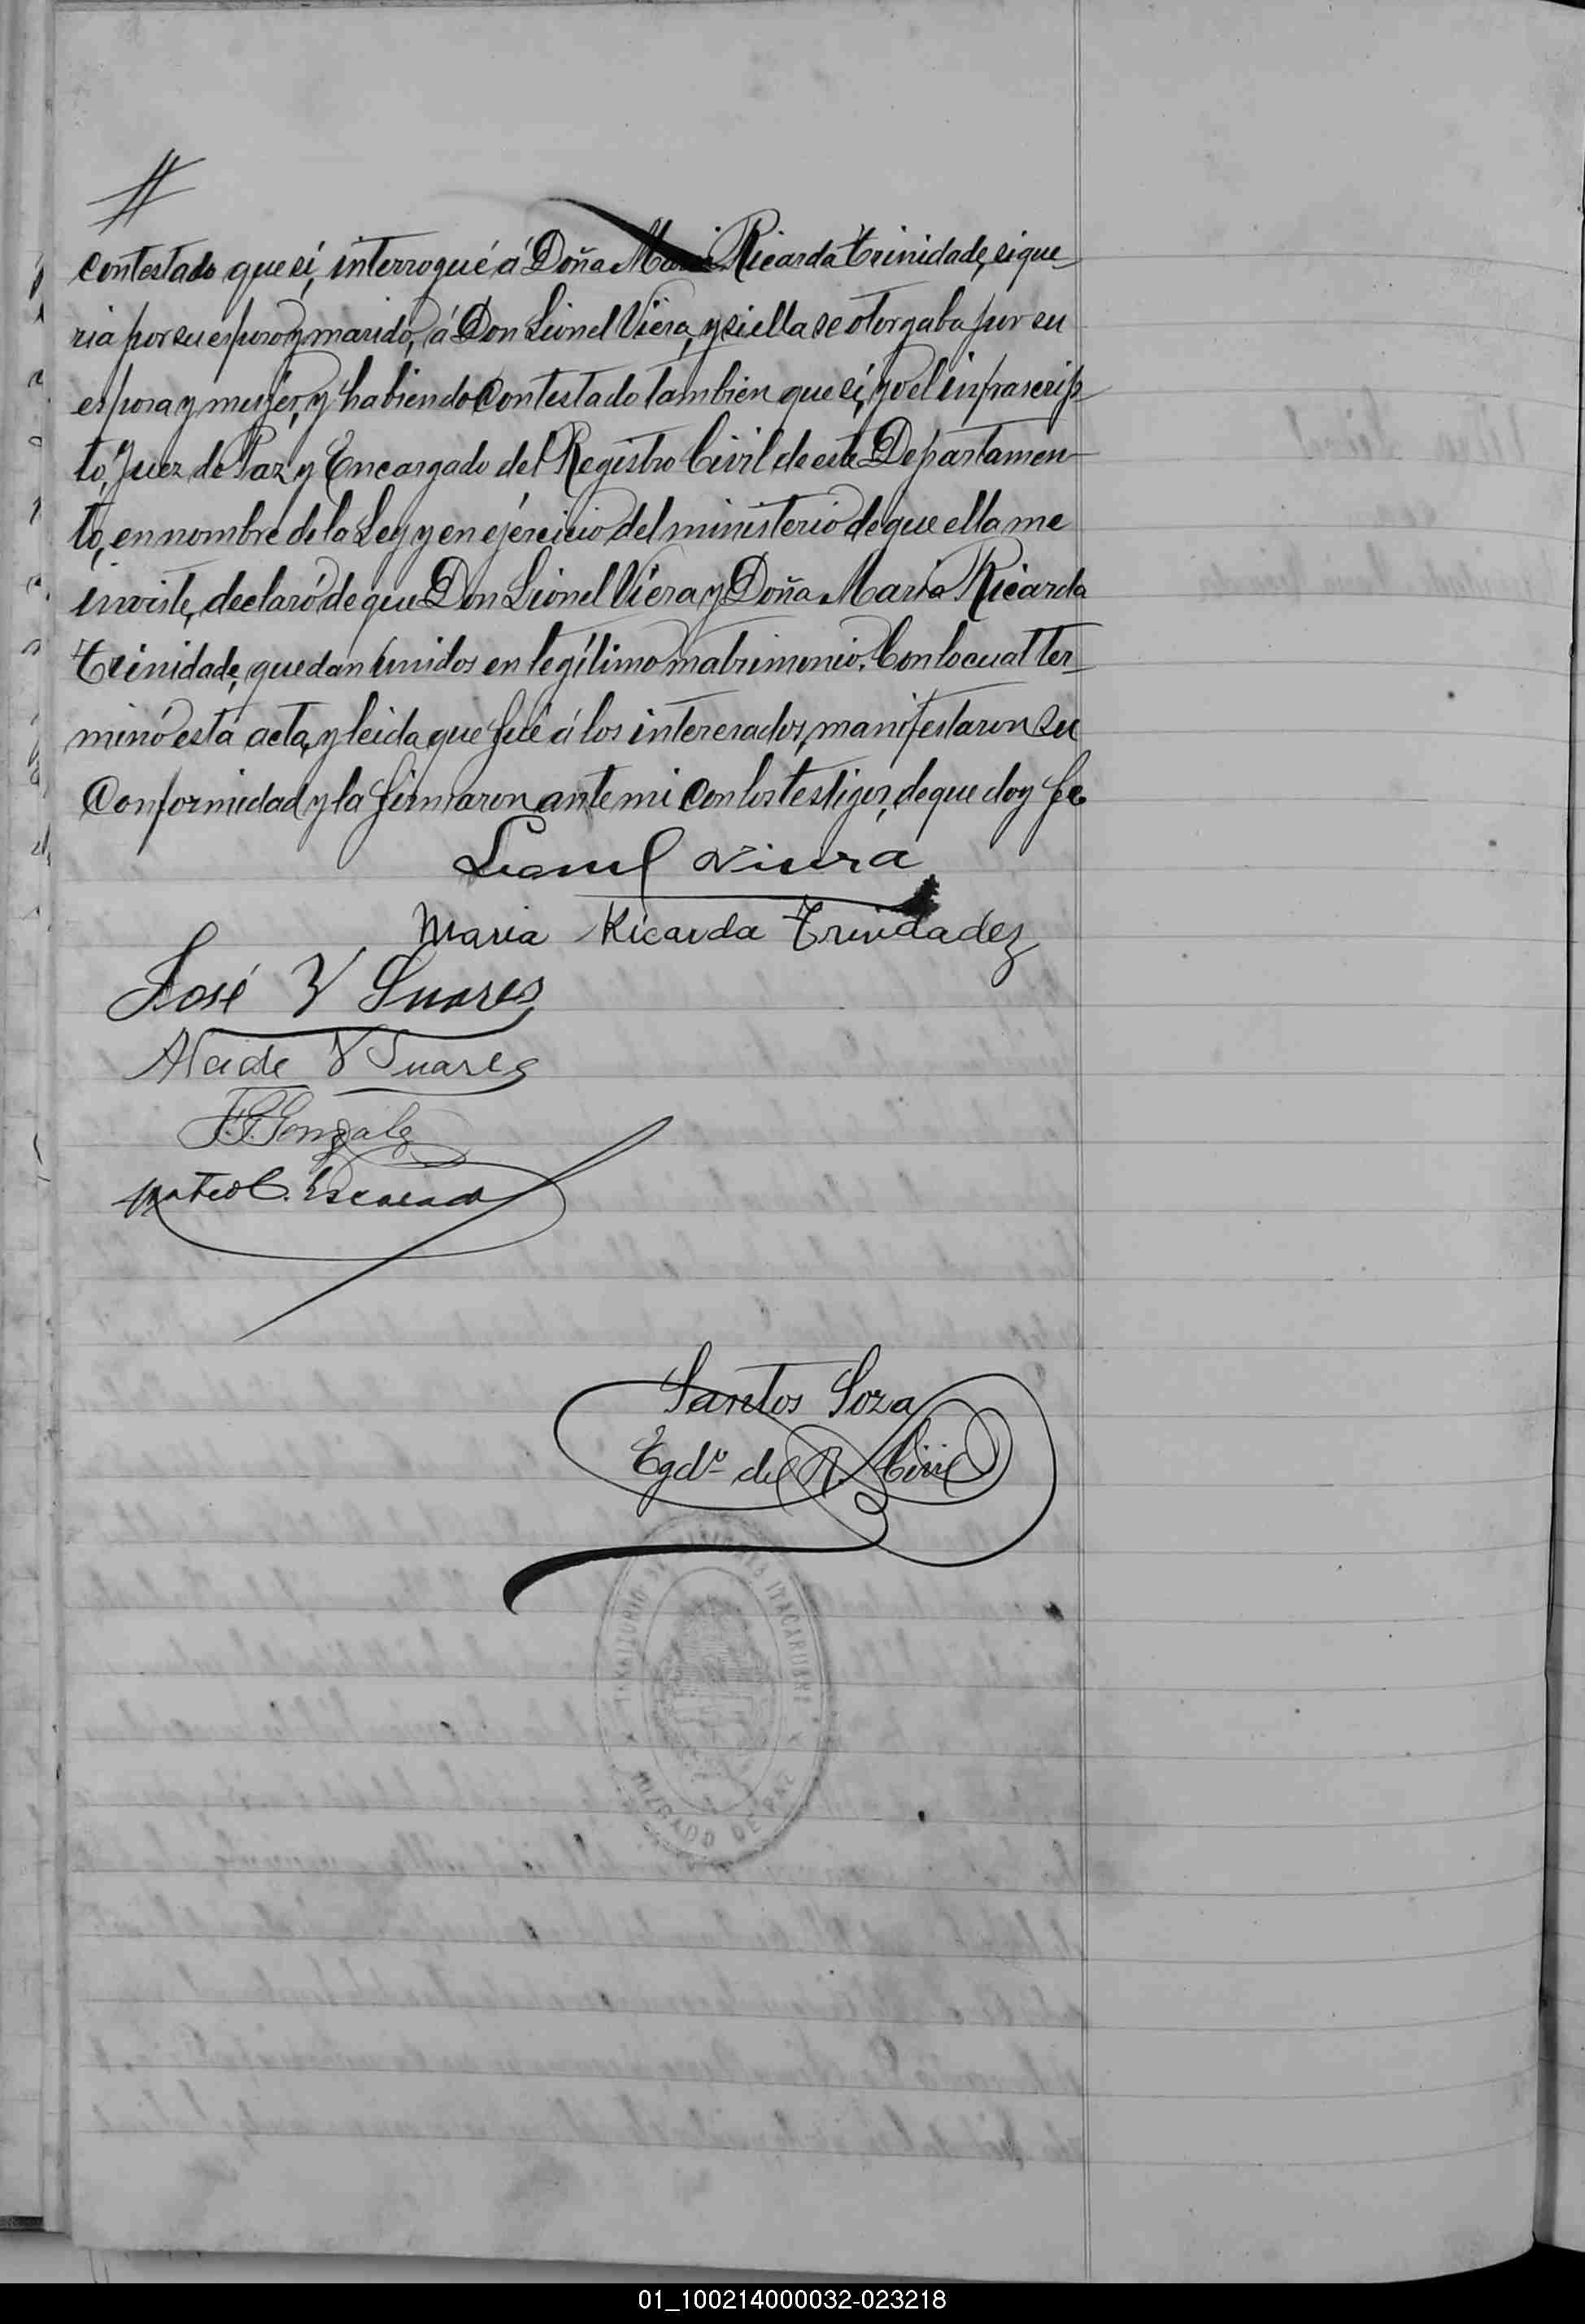 contestado que sí, interrogué á Doña Maria Ricarda Trinidade, si que-
ria por su esposo y marido, á Don Lionel Viera, y si ella se otorgaba por su
esposa y mujer, y habiendo contestado tambien que sí, yo el infrascrip-
to, Juez de Paz y Encargado del Registro Civil de este Departamen-
to, en nombre de la Ley y en ejercicio del ministerio de que ella me
inviste, declaró de que Don Lionel Viera y Doña Maria Ricarda
Trinidade, quedan unidos en legítimo matrimonio. Con lo cual ter-
minó esta acta, y leida que fué á los interesados, manifestaron su
conformidad y la firmaron ante mi con los testigos, de que doy fe
Lionel Viera
Maria Ricarda Trindadez
José V Suares
Alcide V Suares
F. G. Gonzalez
Mateo C. Escalada
Santos Soza
Egdo. del R. Civil
ITACARUARE
JUZGADO DE PAZ
01_100214000032-023218